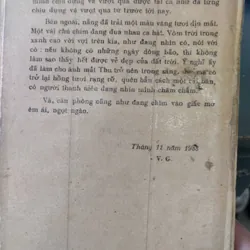 chịu đựng và vượt qua từ trước tới nay.
Bên ngoài, nắng đã trải một màu vàng tươi dịu mát.
Một vài chú chim đang đua nhau ca hát. Vòm trời trong
xanh cao vời vợi trên kia, như đang nhìn cô, nói với
cô : nếu không có những ngày dông bão, thì không
làm sao thấy hết được vẻ đẹp của đất trời. Ý nghĩ ấy
đã làm cho ánh mắt Thu trở nên trong sáng,
trở lại hồng tươi rạng rỡ, quên hẳn cách một
có người thanh niên đang nhìn mình chăm chăm.
Và, căn phòng nắng như đang chìm vào giấc mơ
êm ái, ngọt ngào.
Tháng 11 năm
V. G.